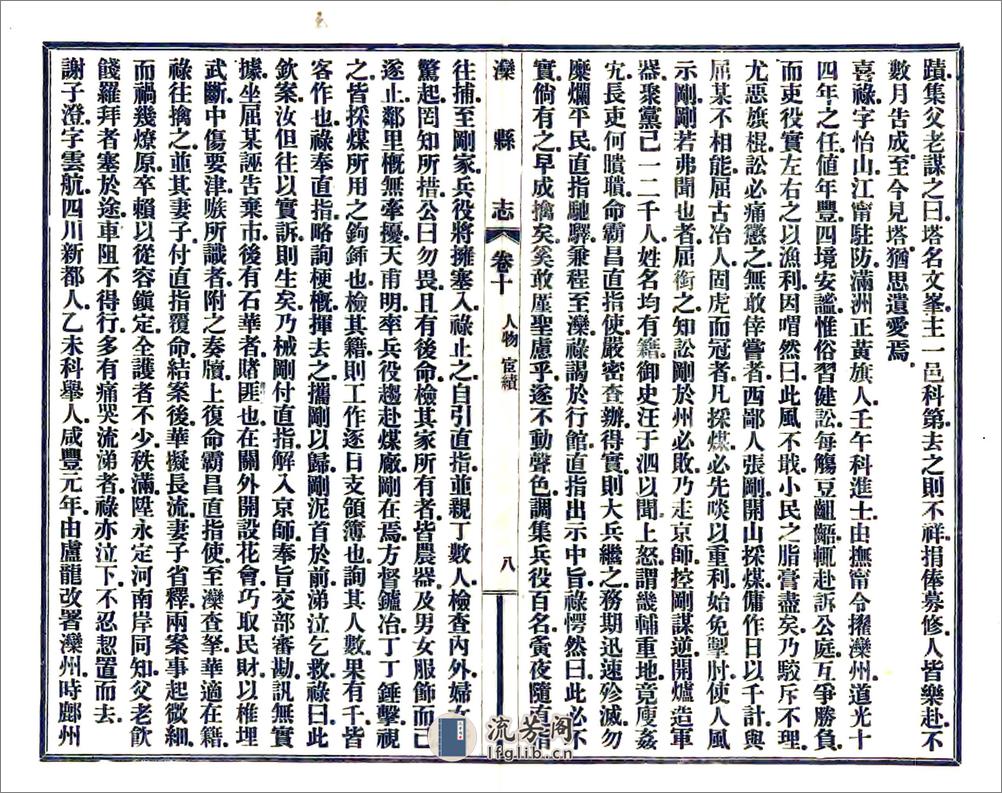 蹟集父老謀之曰塔名文峯主一邑科第去之則不祥捐俸募修人皆樂赴不
數月告成至今見塔猶思遺愛焉
喜祿字怡山江甯駐防滿洲正黃旗人壬午科進士由撫甯令擢灤州道光十
四年之任値年豐四境安謐惟俗習健訟每觴豆齟齬輒赴訴公庭互爭勝負
而吏役實左右之以漁利因喟然曰此風不戢小民之脂膏盡矣乃駮斥不理
尤惡旗棍訟必痛懲之無敢倖嘗者西鄙人張剛開山採煤傭作日以千計與
屈某不相能屈古冶人固虎而冠者凡採煤必先啖以重利始免掣肘使人風
示剛剛若弗聞也者屈銜之知訟剛於州必敗乃走京師控剛謀逆開爐造軍
器聚黨己一二千人姓名均有籍御史汪于泗以聞上怒謂畿輔重地竟廋姦
宄長吏何聵聵命霸昌直指使嚴密查辦得實則大兵繼之務期迅速殄滅勿
糜爛平民直指馳驛兼程至灤祿謁於行館直指出示中旨祿愕然曰此必不
實倘有之早成擒矣奚敢廑聖慮乎遂不動聲色調集兵役百名夤夜隨直指
灤縣志 卷十 人物 宦績 八
往捕至剛家兵役將擁塞入祿止之自引直指並親丁數人檢查內外婦女
驚起罔知所措公曰勿畏且有後命檢其家所有者皆農器及男女服飾而已
遂止鄰里概無牽擾天甫明率兵役趨赴煤廠剛在焉方督鑪冶丁丁錘擊視
之皆採煤所用之鉤鈽也檢其籍則工作逐日支領簿也詢其人數果有千皆
客作也祿奉直指略詢梗概揮去之攜剛以歸剛泥首於前涕泣乞救祿曰此
欽案汝但往以實訴則生矣乃械剛付直指解入京師奉旨交部審勘訊無實
據坐屈某誣告棄市後有石華者賭匪也在關外開設花會巧取民財以椎埋
武斷中傷要津嗾所識者附之奏牘上復命霸昌直指使至灤查拏華適在籍
祿往擒之並其妻子付直指覆命結案後華擬長流妻子省釋兩案事起微細
而禍幾燎原卒賴以從容鎭定全護者不少秩滿陞永定河南岸同知父老飮
餞羅拜者塞於途車阻不得行多有痛哭流涕者祿亦泣下不忍恝置而去
謝子澄字雲航四川新都人乙未科舉人咸豐元年由盧龍改署灤州時鄜州
流芳阁
lfglib.cn